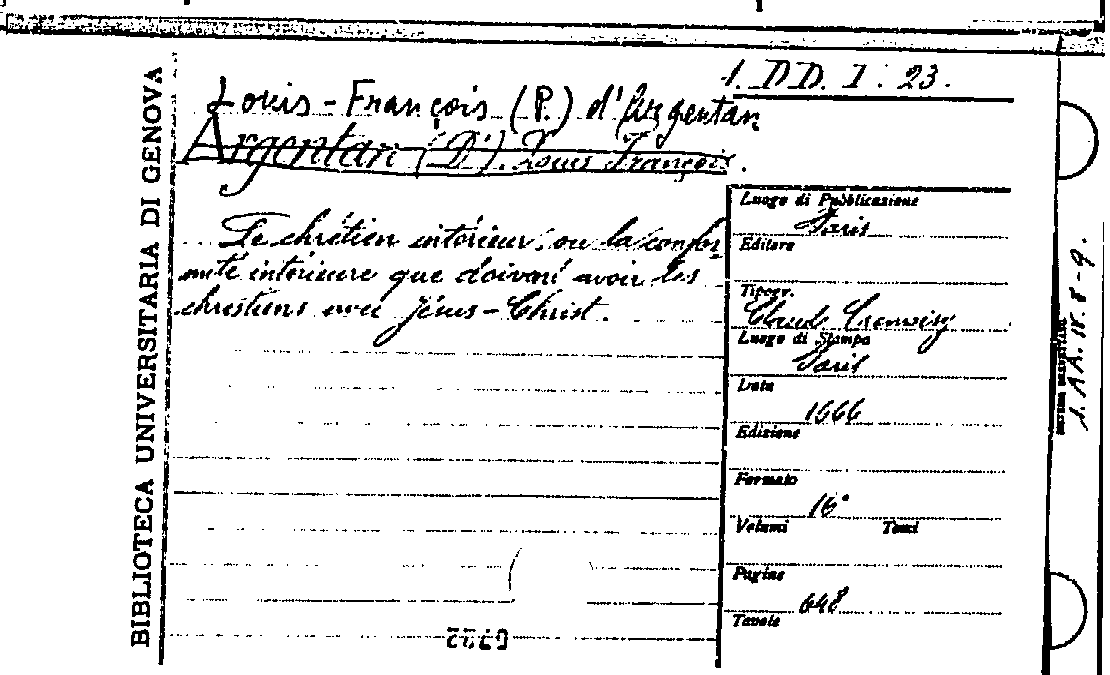 1. DD. I. 23.
Louis-François (P.) d'Argentan
Argentan (D'). Louis François.
Le chrétien intérieur, ou la confor
mité intérieure que doivent avoir les
chrestiens avec Jésus-Christ.
BIBLIOTECA UNIVERSITARIA DI GENOVA
Luogo di Pubblicazione
Paris
Editore
Tipogr.
Claude
Luogo di Stampa
Paris
Data
1666
Edizione
Formato
16°
Volumi Tomi
Pagine
648
Tavole
1. AA. IV. 8-9.